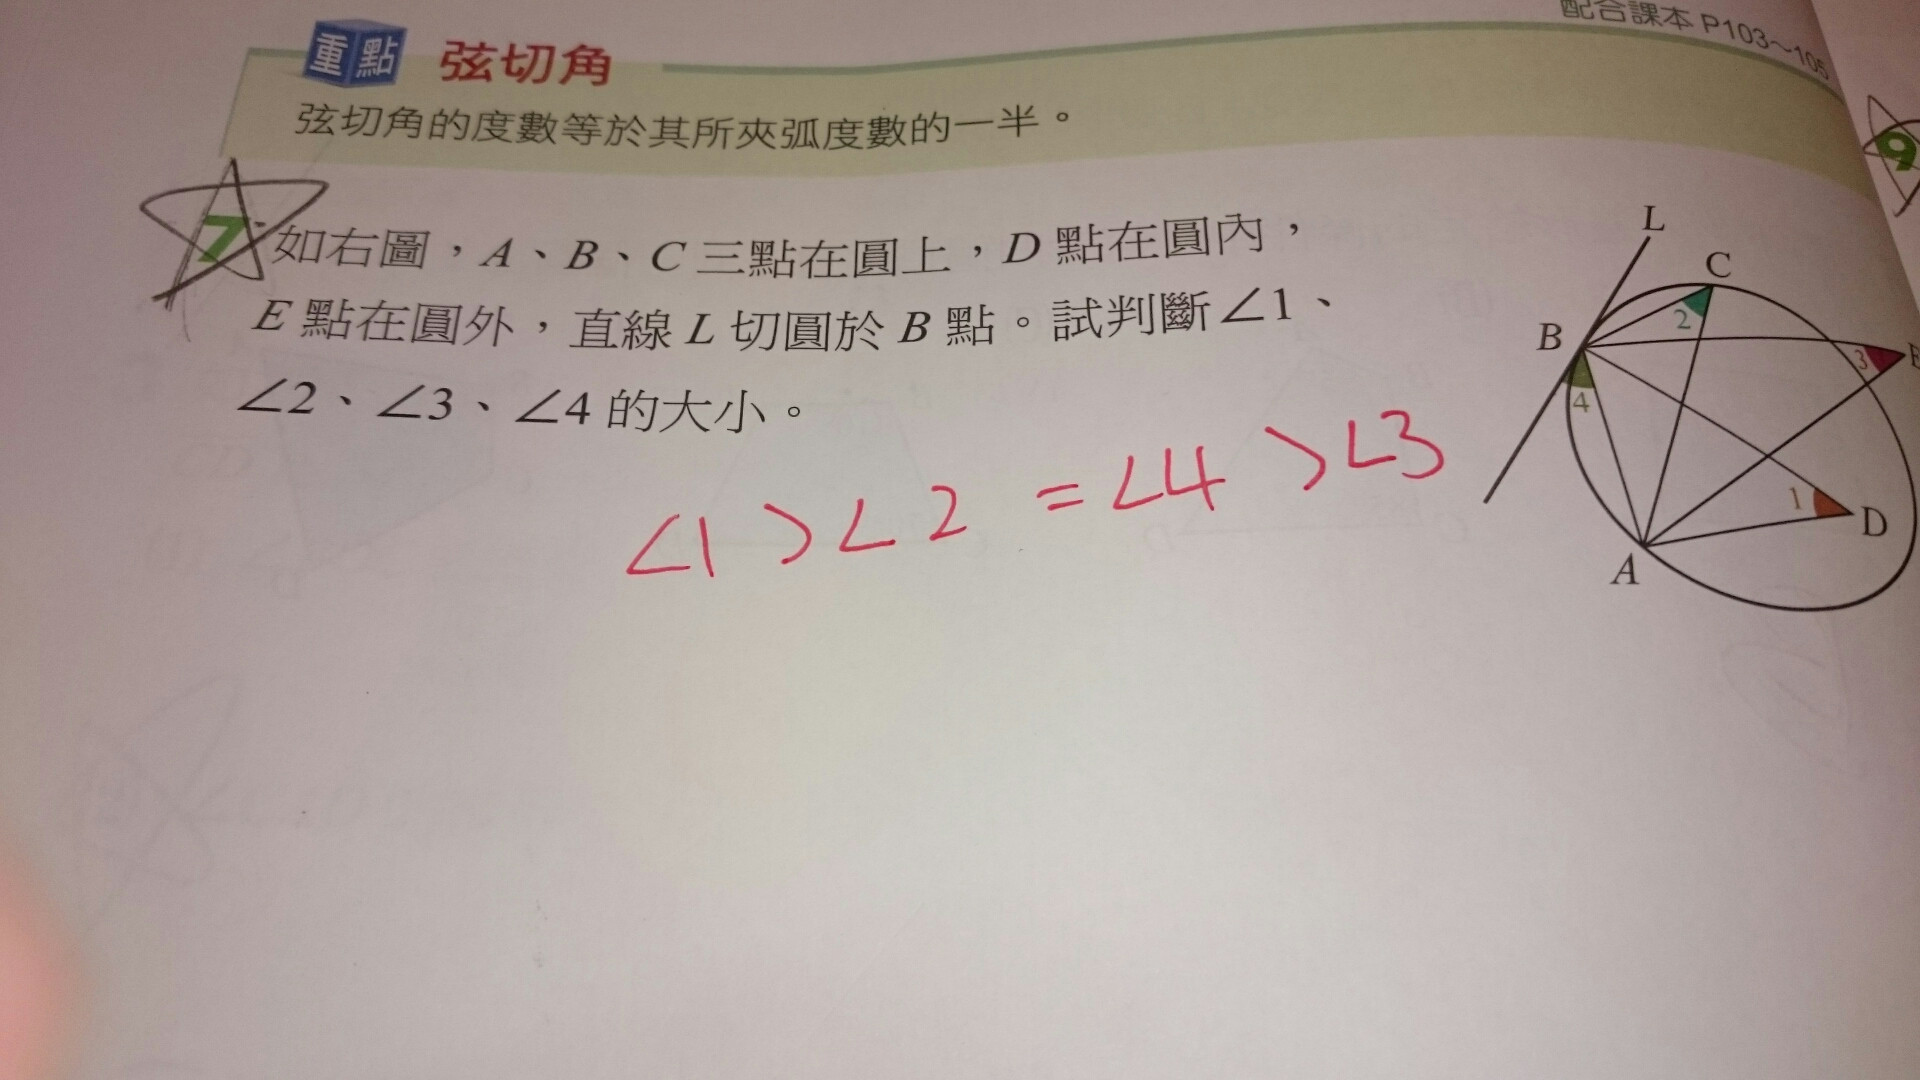 配合課本 P103～105
重點 弦切角
弦切角的度數等於其所夾弧度數的一半。
7 如右圖，A、B、C 三點在圓上，D 點在圓內，
E 點在圓外，直線 L 切圓於 B 點。試判斷∠1、
∠2、∠3、∠4 的大小。
∠1 > ∠2 = ∠4 > ∠3
L
C
2
B
3
E
4
1
D
A
9